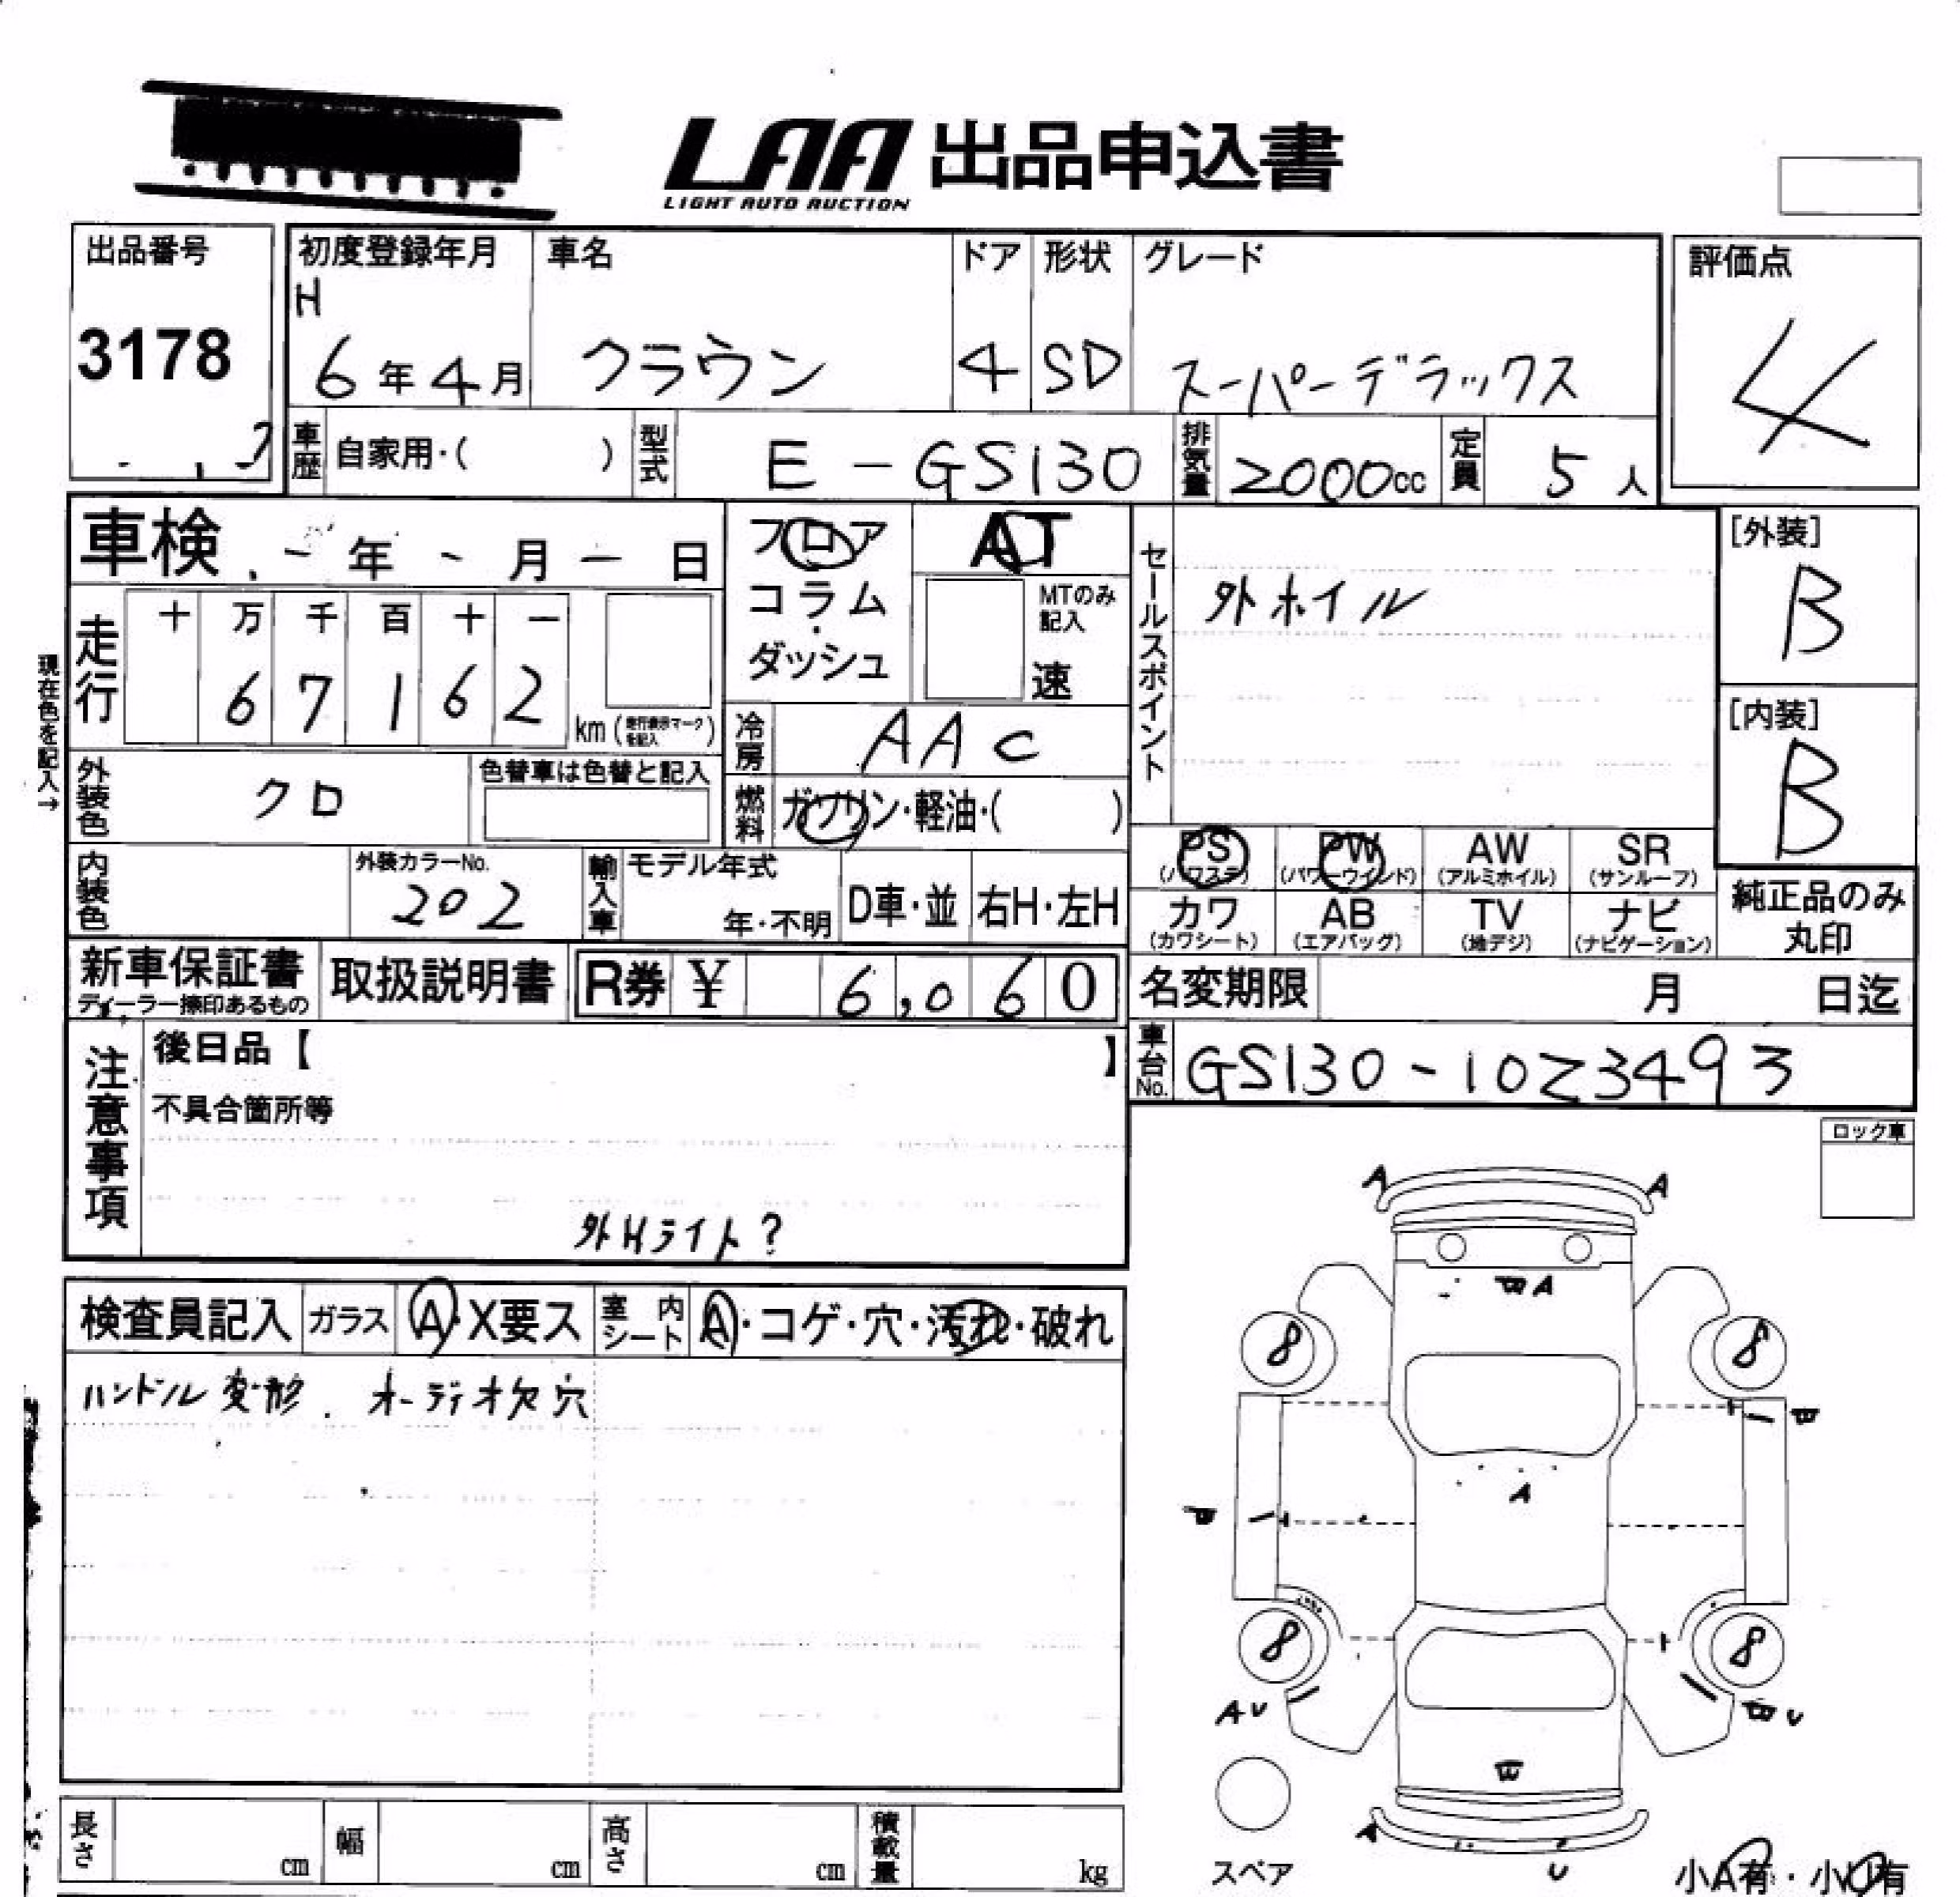 LAA 出品申込書
LIGHT AUTO AUCTION
出品番号
3178
初度登録年月
H
6年4月
車名
クラウン
ドア
4
形状
SD
グレード
スーパーデラックス
評価点
4
車歴 自家用・( )
型式 E-GS130
排気量 2000cc
定員 5人
車検 - 年 - 月 - 日
フロア
コラム
・
ダッシュ
AT
MTのみ
記入
速
セールスポイント
外ホイル
[外装]
B
[内装]
B
現在色を記入→
走行
十 万 千 百 十 一
6 7 1 6 2
km (走行表示マークを記入)
冷房 AAC
外装色 クロ
色替車は色替と記入
燃料 ガソリン・軽油・( )
内装色
外装カラーNo.
202
輸入車 モデル年式
年・不明
D車・並
右H・左H
PS
(パワステ)
PW
(パワーウインド)
AW
(アルミホイル)
SR
(サンルーフ)
カワ
(カワシート)
AB
(エアバッグ)
TV
(地デジ)
ナビ
(ナビゲーション)
純正品のみ
丸印
新車保証書
ディーラー捺印あるもの
取扱説明書
R券 ¥ 6,060
名変期限 月 日迄
車台No. GS130-1023493
注意事項
後日品【 】
不具合箇所等
外Hライト?
ロック車
検査員記入
ガラス A・X要ス
室内シート A・コゲ・穴・汚れ・破れ
ハンドル変形. オーディオ欠穴
A A
A
8 8
A
8 8
A U
U
A
U
スペア
小A有・小U有
長さ cm
幅 cm
高さ cm
積載量 kg